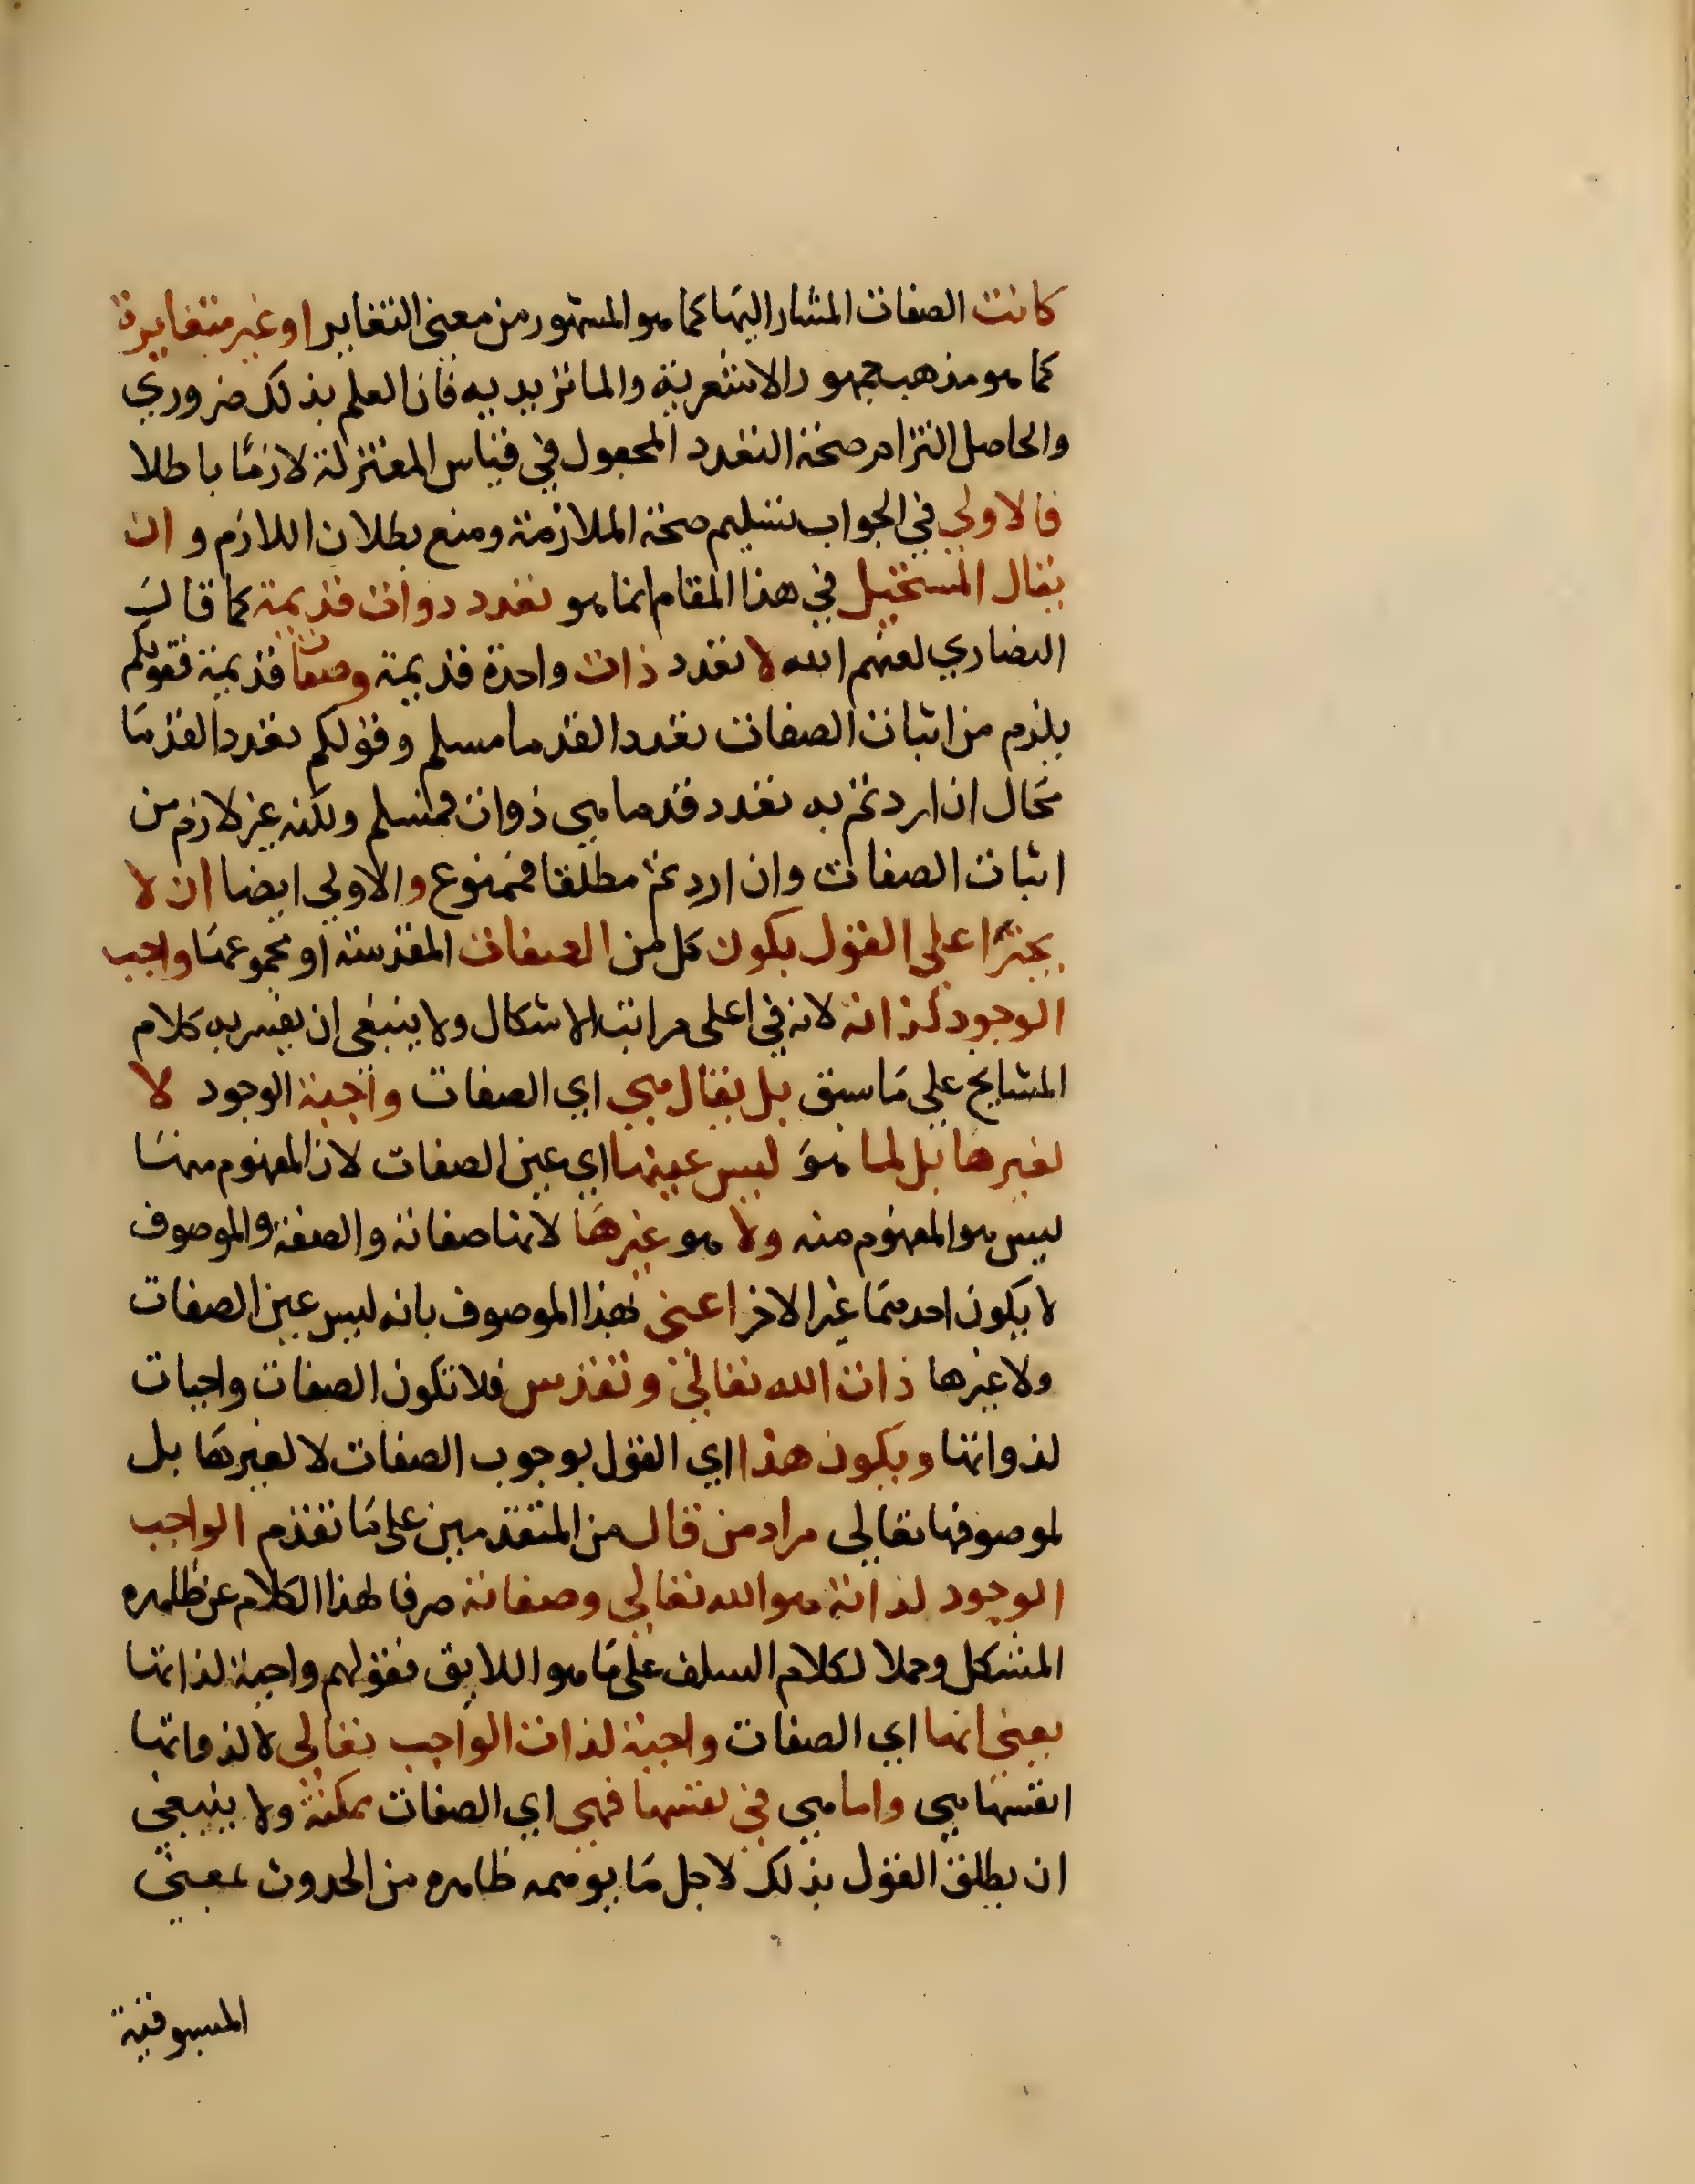 كانت الصفات المشار اليها كما هو المشهور من معنى التغاير او غير متغايرة
كما هو مذهب جمهور الاشعرية والماتريديه فان العلم بذلك ضروري
والحاصل التزام صحة التعدد المجعول في قياس المعتزلة لازما باطلا
فالاولي في الجواب تسليم صحة الملازمة ومنع بطلان اللازم و ان
يقال المستحيل في هذا المقام انما هو تعدد دوات قديمة كما قال
النصاري لعنهم الله لا تعدد ذات واحدة قديمة وصفات قديمة فقولكم
يلزم من اثبات الصفات تعدد القدما مسلم وقولكم تعدد القدما
محال ان اردتم به تعدد قدما هي ذوات فمسلم ولكنه غير لازم من
اثبات الصفات وان اردتم مطلقا فممنوع والاولي ايضا ان لا
يجترا علي القول بكون كل من الصفات المقدسة او مجموعها واجب
الوجود لذاته لانه في اعلى مراتب الاشكال ولا ينبغي ان يفسر به كلام
المشايخ علي ما سبق بل يقال هي اي الصفات واجبة الوجود لا
لغيرها بل لما هو ليس عينها اي عين الصفات لان المفهوم منها
ليس هو المفهوم منه ولا هو غيرها لانها صفاته والصفة والموصوف
لا يكون احدهما غير الاخر اعني بهذا الموصوف بانه ليس عين الصفات
ولا غيرها ذات الله تعالي وتقدس فلا تكون الصفات واجبات
لذواتها ويكون هذا اي القول بوجوب الصفات لا لغيرها بل
لموصوفها تعالى مراد من قال من المتقدمين على ما تقدم الواجب
الوجود لذاته هو الله تعالى وصفاته صرفا لهذا الكلام عن ظاهره
المشكل وحملا لكلام السلف على ما هو اللايق فقولهم واجبة لذاتها
يعني انها اي الصفات واجبة لذات الواجب تعالى لا لذواتها
انفسها هي واما هي في نفسها فهي اي الصفات ممكنة ولا ينبغي
ان يطلق القول بذلك لاجل ما يوهمه ظاهره من الحدوث بمعني
المسبوقية